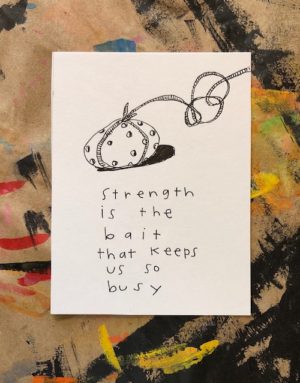 strength
is the
bait
that keeps
us so
busy